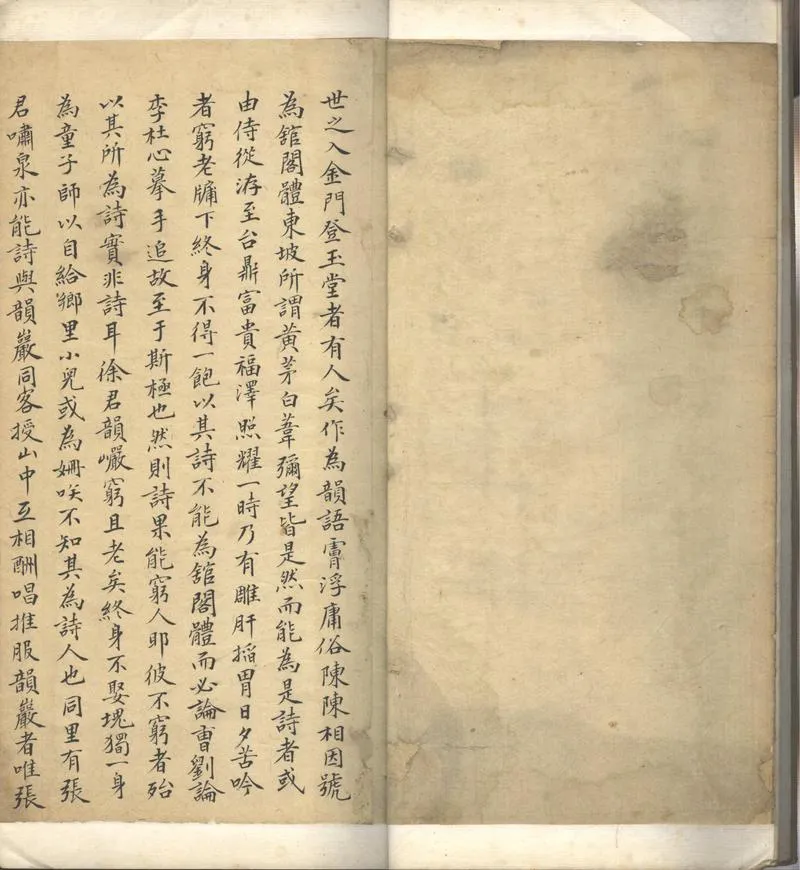 世之入金門登玉堂者有人矣作為韻語膚浮庸俗陳陳相因號
為舘閣體東坡所謂黃茅白葦彌望皆是然而能為是詩者或
由侍從洊至台鼎富貴福澤照耀一時乃有雕肝掐胃日夕苦吟
者窮老牖下終身不得一飽以其詩不能為舘閣體而必論曹劉論
李杜心摹手追故至于斯極也然則詩果能窮人耶彼不窮者殆
以其所為詩實非詩耳徐君韻巖窮且老矣終身不娶塊獨一身
為童子師以自給鄉里小兒或為姍咲不知其為詩人也同里有張
君嘯泉亦能詩與韻巖同客授山中互相酬唱推服韻巖者唯張